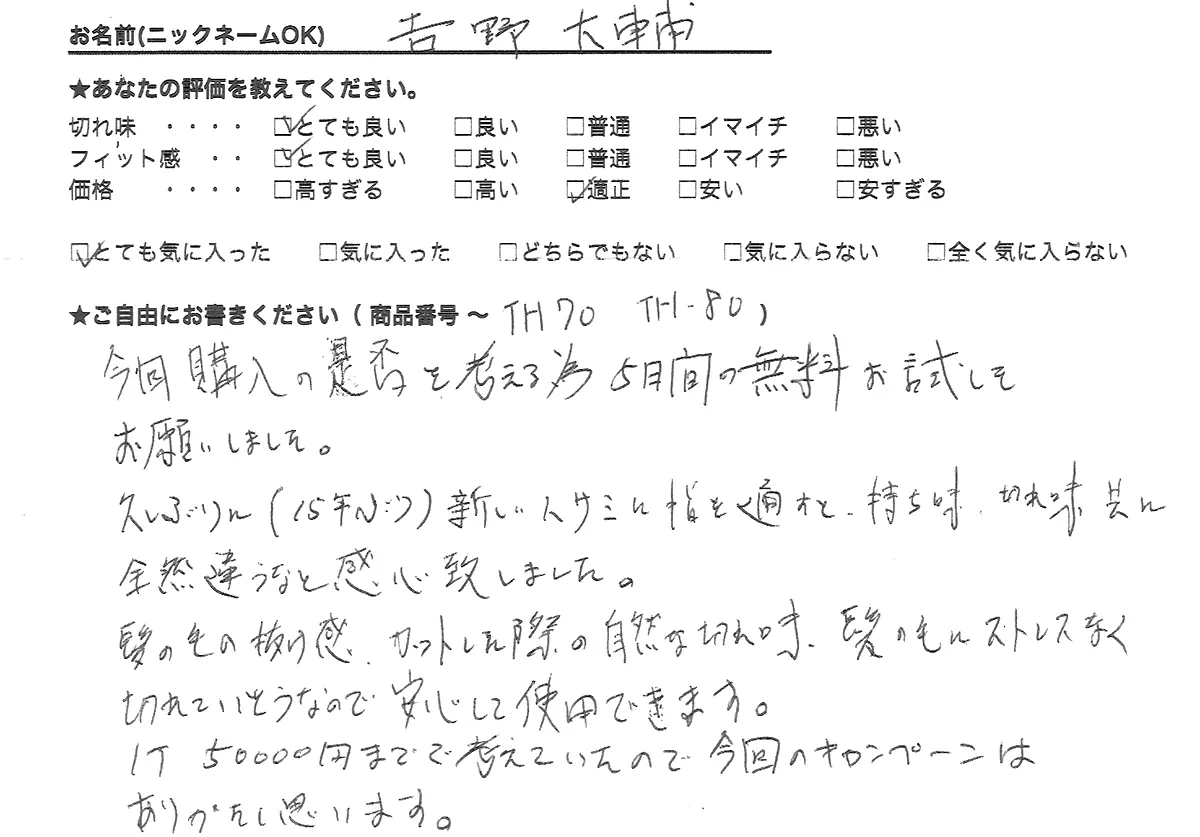 お名前(ニックネームOK) 吉野 大輔
★あなたの評価を教えてください。
切れ味 ・・・・ ☑とても良い □良い □普通 □イマイチ □悪い
フィット感 ・・ ☑とても良い □良い □普通 □イマイチ □悪い
価格 ・・・・ □高すぎる □高い ☑適正 □安い □安すぎる
☑とても気に入った □気に入った □どちらでもない □気に入らない □全く気に入らない
★ご自由にお書きください（商品番号～TH70 TH-80）
今回購入の是否を考える為5日間の無料お試しを
お願いしました。
久しぶりに(15年ぶり)新しいハサミに指を通すと、持ち味、切れ味共に
全然違うなと感心致しました。
髪の毛の抜け感、カットした際の自然な切れ味、髪の毛にストレスなく
切れていそうなので安心して使用できます。
1丁 50000円までで考えていたので今回のキャンペーンは
ありがたく思います。